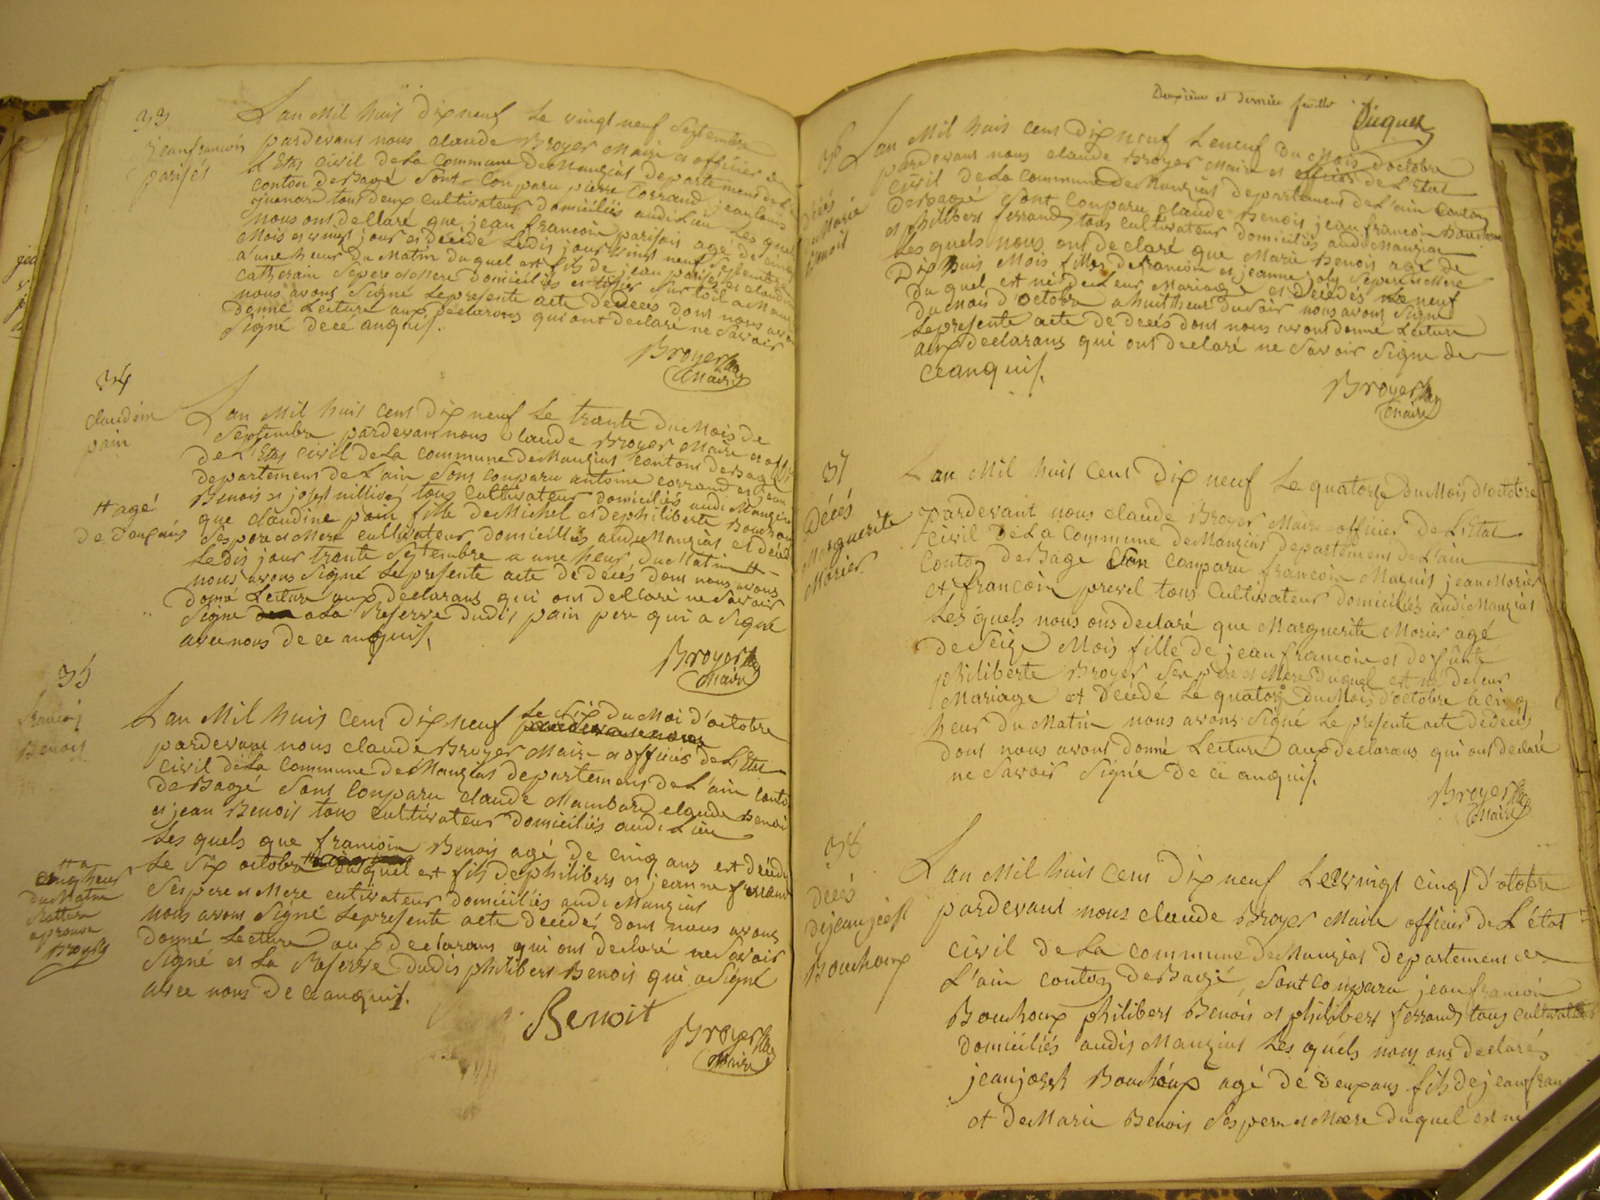 33
jean francois
parisés
L'an Mil huis Dix neuf Le vingt neuf Septembre
pardevans nous claude Broyer Maire et officier de
L'Etas civil de La Commune de Manzias departemens de L'
conton de Bagé Sons Conparu pierre Corrand jean Louis
tous deux cultivateur domiciliés audi Lieu Les quel
nous ons declaré que jean francoin parisais agé de cinq
Mois et vings jour et decédé Ledis jour vings neuf Septembre
a une heur du Matin duquel est fils de jean parises et claudine
Catherain Sepere et Mere domiciliés
nous avons Signé Lepresente acte de deces dons nous avons
donné Lecture aux declarans qui ont declaré ne Savoir
Signé de ce anquis.
Broyer
Maire
34
claudine
pain
L'an Mil huis cens Dix neuf Le trante du Mois de
Septembre pardevans nous Claude Broyer Maire et offi
de L'Etas civil de La commune de Manzias contons de Bagé
departemens de L'ain Sons conparu antoine corrand et jean
Benois et josept millives tous cultivateur domiciliés audi Manzias
que claudine pain fille de Michel et de philiberte Bouchoux
Sespere et Mere cultivateur domiciliés audi Manzias et decédé
Ledis jour trante Septembre a une heur du Matin #
# agé
de deux ans
nous avons Signé Lepresente acte de decés dons nous avons
donné Lecture aux declarans qui ons declaré ne Savoir
Signé a La Reserve dudis pain pere qui a Signé
avec nous de ce anquis.
Broyer
Maire
35
francois
Benois
L'an Mil huis cens Dix neuf Le Six du Moi d'octobre
pardevans nous
pardevans nous claude Broyer Maire et officier de L'Etas
civil de La commune de Manzias departemens de L'ain Conto
de Bagé Sons Conparu claude Mambard claude Benois
et jean Benois tous cultivateur domiciliés audi Lieu
Les quels que francoin Benois agé de cinq ans est decédé
Le Six octobre duquel est fils de philibers et jeanne ferrand
# a
cinq heur
du Matin
Ratture
approuvé
Broyer
Sespere et Mere cultivateur domiciliés audi Manzias
nous avons Signé Lepresente acte decedés dons nous avons
donné Lecture aux declarans qui ons declaré ne Savoir
Signé et La Reserve dudis philibers Benois qui a Signé
avec nous de ce anquis.
Benoit
Broyer
Maire
Deuxième et dernière feuille
Duquet
36
decés
Marie
Benois
L'an Mil huis cens Dix neuf Le neuf du Mois d'octobre
pardevans nous claude Broyer Maire et officier de L'Etat
civil de La Commune de Manzias departemens de L'ain Conton
de Bagé Sont Conparu claude Benois jean francoin Bouchoux
et philibers ferrand tous cultivateur domiciliés audi Manzias
Les quels nous ons declaré que Marie Benois agé de
Dix huis Mois fille de francoin et jeanne joly Sepere et Mere
du quel est né de Leur Mariage et Decédés Le neuf
du mois d'octobre a huit heur du Soir nous avons Signé
Lepresente acte de decés dons nous avons donné Lecture
aux declarans qui ons declaré ne Savoir Signé de
ce anquis.
Broyer
Maire
37
Décés
Marguerite
Morier
L'an Mil huis cens Dix neuf Le quatorze du Mois d'octobre
pardevant nous claude Broyer Maire officier de L'Etat
civil de La Commune de Manzias departemens de L'ain
Conton de Bage Son Conparu francoin Marquis jean Morier
et francoin prevel tous Cultivateur domiciliés audi Manzias
Les quels nous ons declaré que Marguerite Morier agé
de Seize Mois fille de jean francoin et defunte
philiberte Broyer Ses pere et Mere duquel est né de Leur
Mariage et Decédé Le quatorze du Mois d'octobre a cinq
heur du Matin nous avons Signé Le presente acte de decés
dons nous avons donné Lecture aux declarans qui ons declaré
ne Savoir Signé De ce anquis.
Broyer
Maire
38
Décés
de jean josept
Bouchoux
L'an Mil huis cens Dix neuf Le vingt cinq d'octobre
pardevans nous claude Broyer Maire officier de L'état
civil de La commune de Manzias departemens de
L'ain conton de Bagé, Sont conparu jean francoin
Bouchoux philibers Benois et philibers ferrand tous cultivateur
domiciliés audis Manzias Les quels nous ons declarés
jean josept Bouchoux agé de deux ans fils de jean fran
et de Marie Benois Ses pere et Mere duquel est né